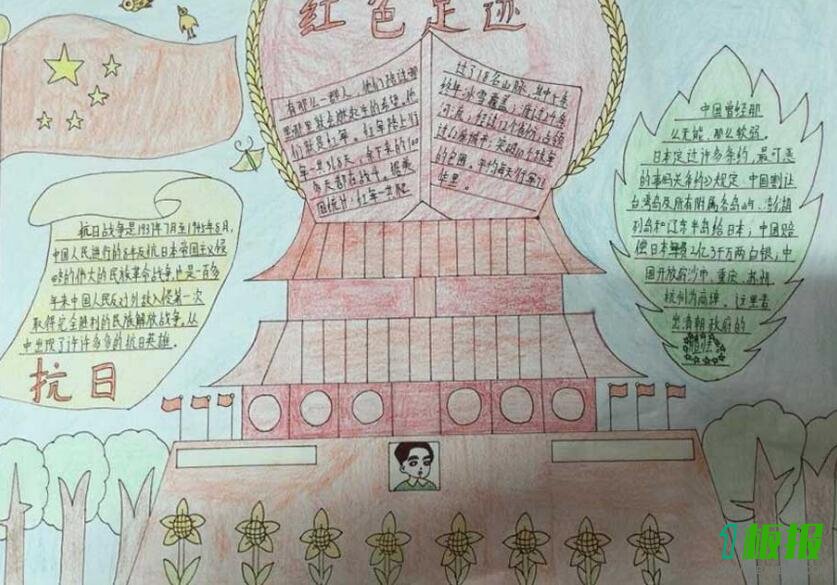 红色足迹
有那么一群人，他们路过哪
里那里就会燃起生的希望。他
们就是红军。红军路上行
军一共368天，余下来的100
多天都在战斗。据美
国统计：红军一共爬
过了18名山脉，其中5条
终年冰雪覆盖；渡过24条
河流；经过12个省份；占领
过62座城市；突破10个球军
的包围，平均每天行军71
华里。
抗日战争是1937年7月至1945年8月，
中国人民进行的8年反抗日本帝国主义侵
略的伟大的民族革命战争。也是一百多
年来中国人民反对外敌入侵第一次
取得完全胜利的民族解放战争。从
中出现了许许多多的抗日英雄。
抗日
中国曾经那
么无能，那么软弱。
日本定过许多条约，最可恶
的《马关条约》规定：中国割让
台湾岛及所有附属各岛屿、澎湖
列岛和辽东半岛给日本；中国赔
偿日本军费2亿3千万两白银；中
国开放沙市、重庆、苏州
杭州为商埠，这里看
出清朝政府的
1板报